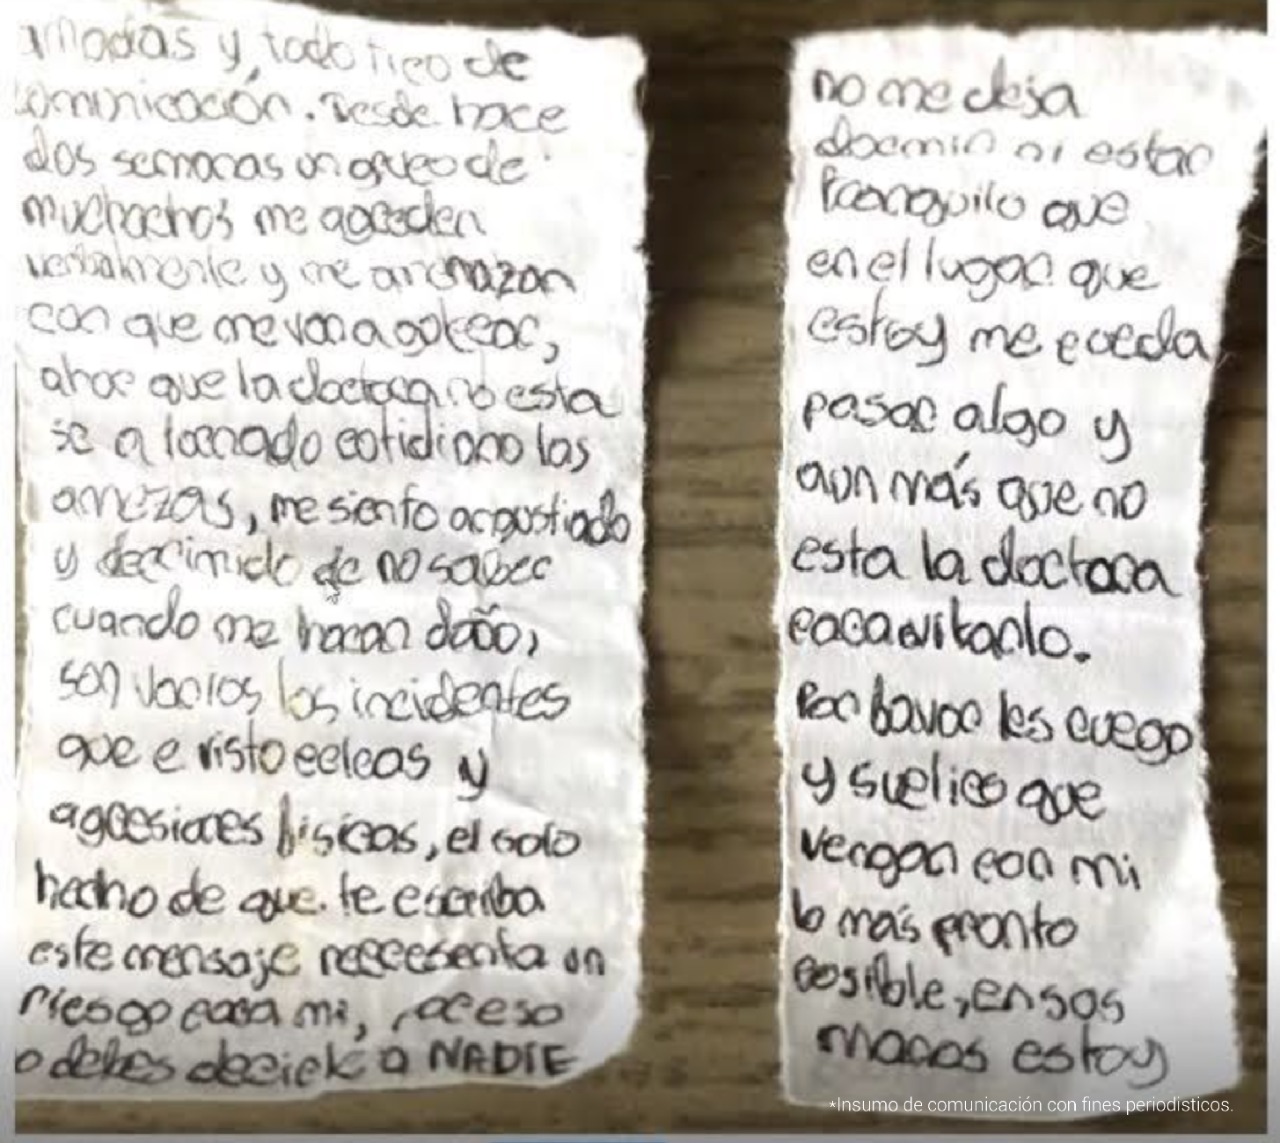 amadas y, todo tipo de
comunicación. Desde hace
dos semanas un grupo de
muchachos me agreden
verbalmente y me amenazan
con que me van a golpear,
ahor que la doctora no esta
se a tornado cotidiano las
amezas, me siento angustiado
y deprimido de no saber
cuando me haran daño,
son varios los incidentes
que e visto peleas y
agresiones fisicas, el solo
hecho de que te escriba
este mensaje representa un
riesgo para mi, por eso
o debes decirle a NADIE
no me deja
dormir ni estar
tranquilo que
en el lugar que
estoy me pueda
pasar algo y
aun más que no
esta la doctora
para evitarlo.
Por favor les ruego
y suplico que
vengan con mi
lo más pronto
posible, en sus
manos estoy
*Insumo de comunicación con fines periodísticos.